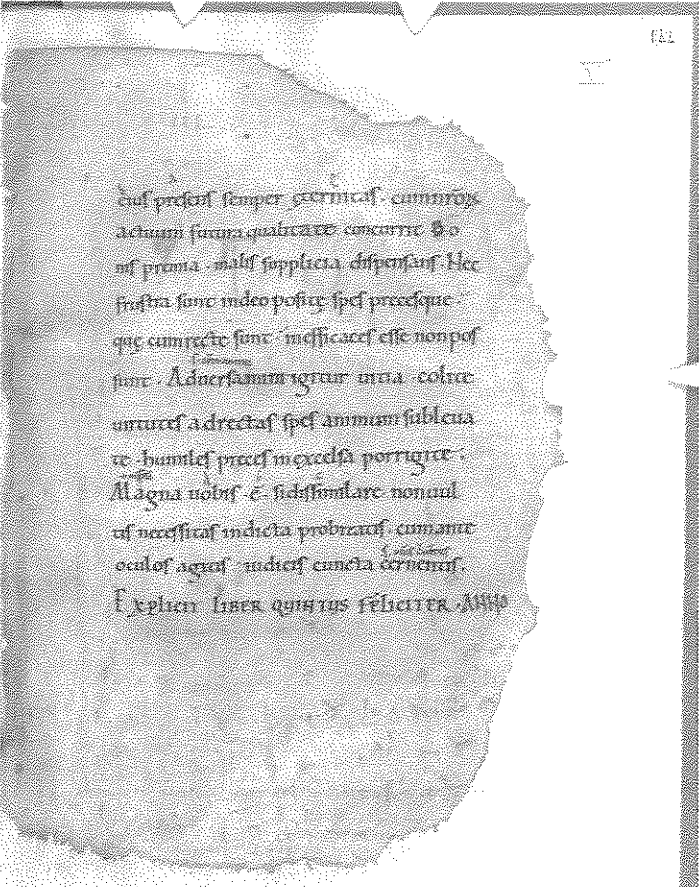 eiuſ preſenſ ſemper ęternitaſ · cum nr̄oꝝ
actuum futura qualitate concurrit Bo
niſ premia · maliſ ſupplicia diſpenſanſ · Nec
fruſtra ſunt indeo poſitę ſpeſ preceſque ·
quę cum rectę ſunt · inefficaceſ eſſe non poſ
ſunt · Aduerſamini igitur uitia · colite
uirtuteſ adrectaſ ſpeſ animum ſubleua
te · humileſ preceſ inexcelſa porrigite ·
Magna uobiſ ē ſi diſſimulare non uul
tiſ neceſſitaſ indicta probitatiſ cum ante
oculoſ agitiſ iudiciſ cuncta cernentiſ.
Explicit liber quintus feliciter ·